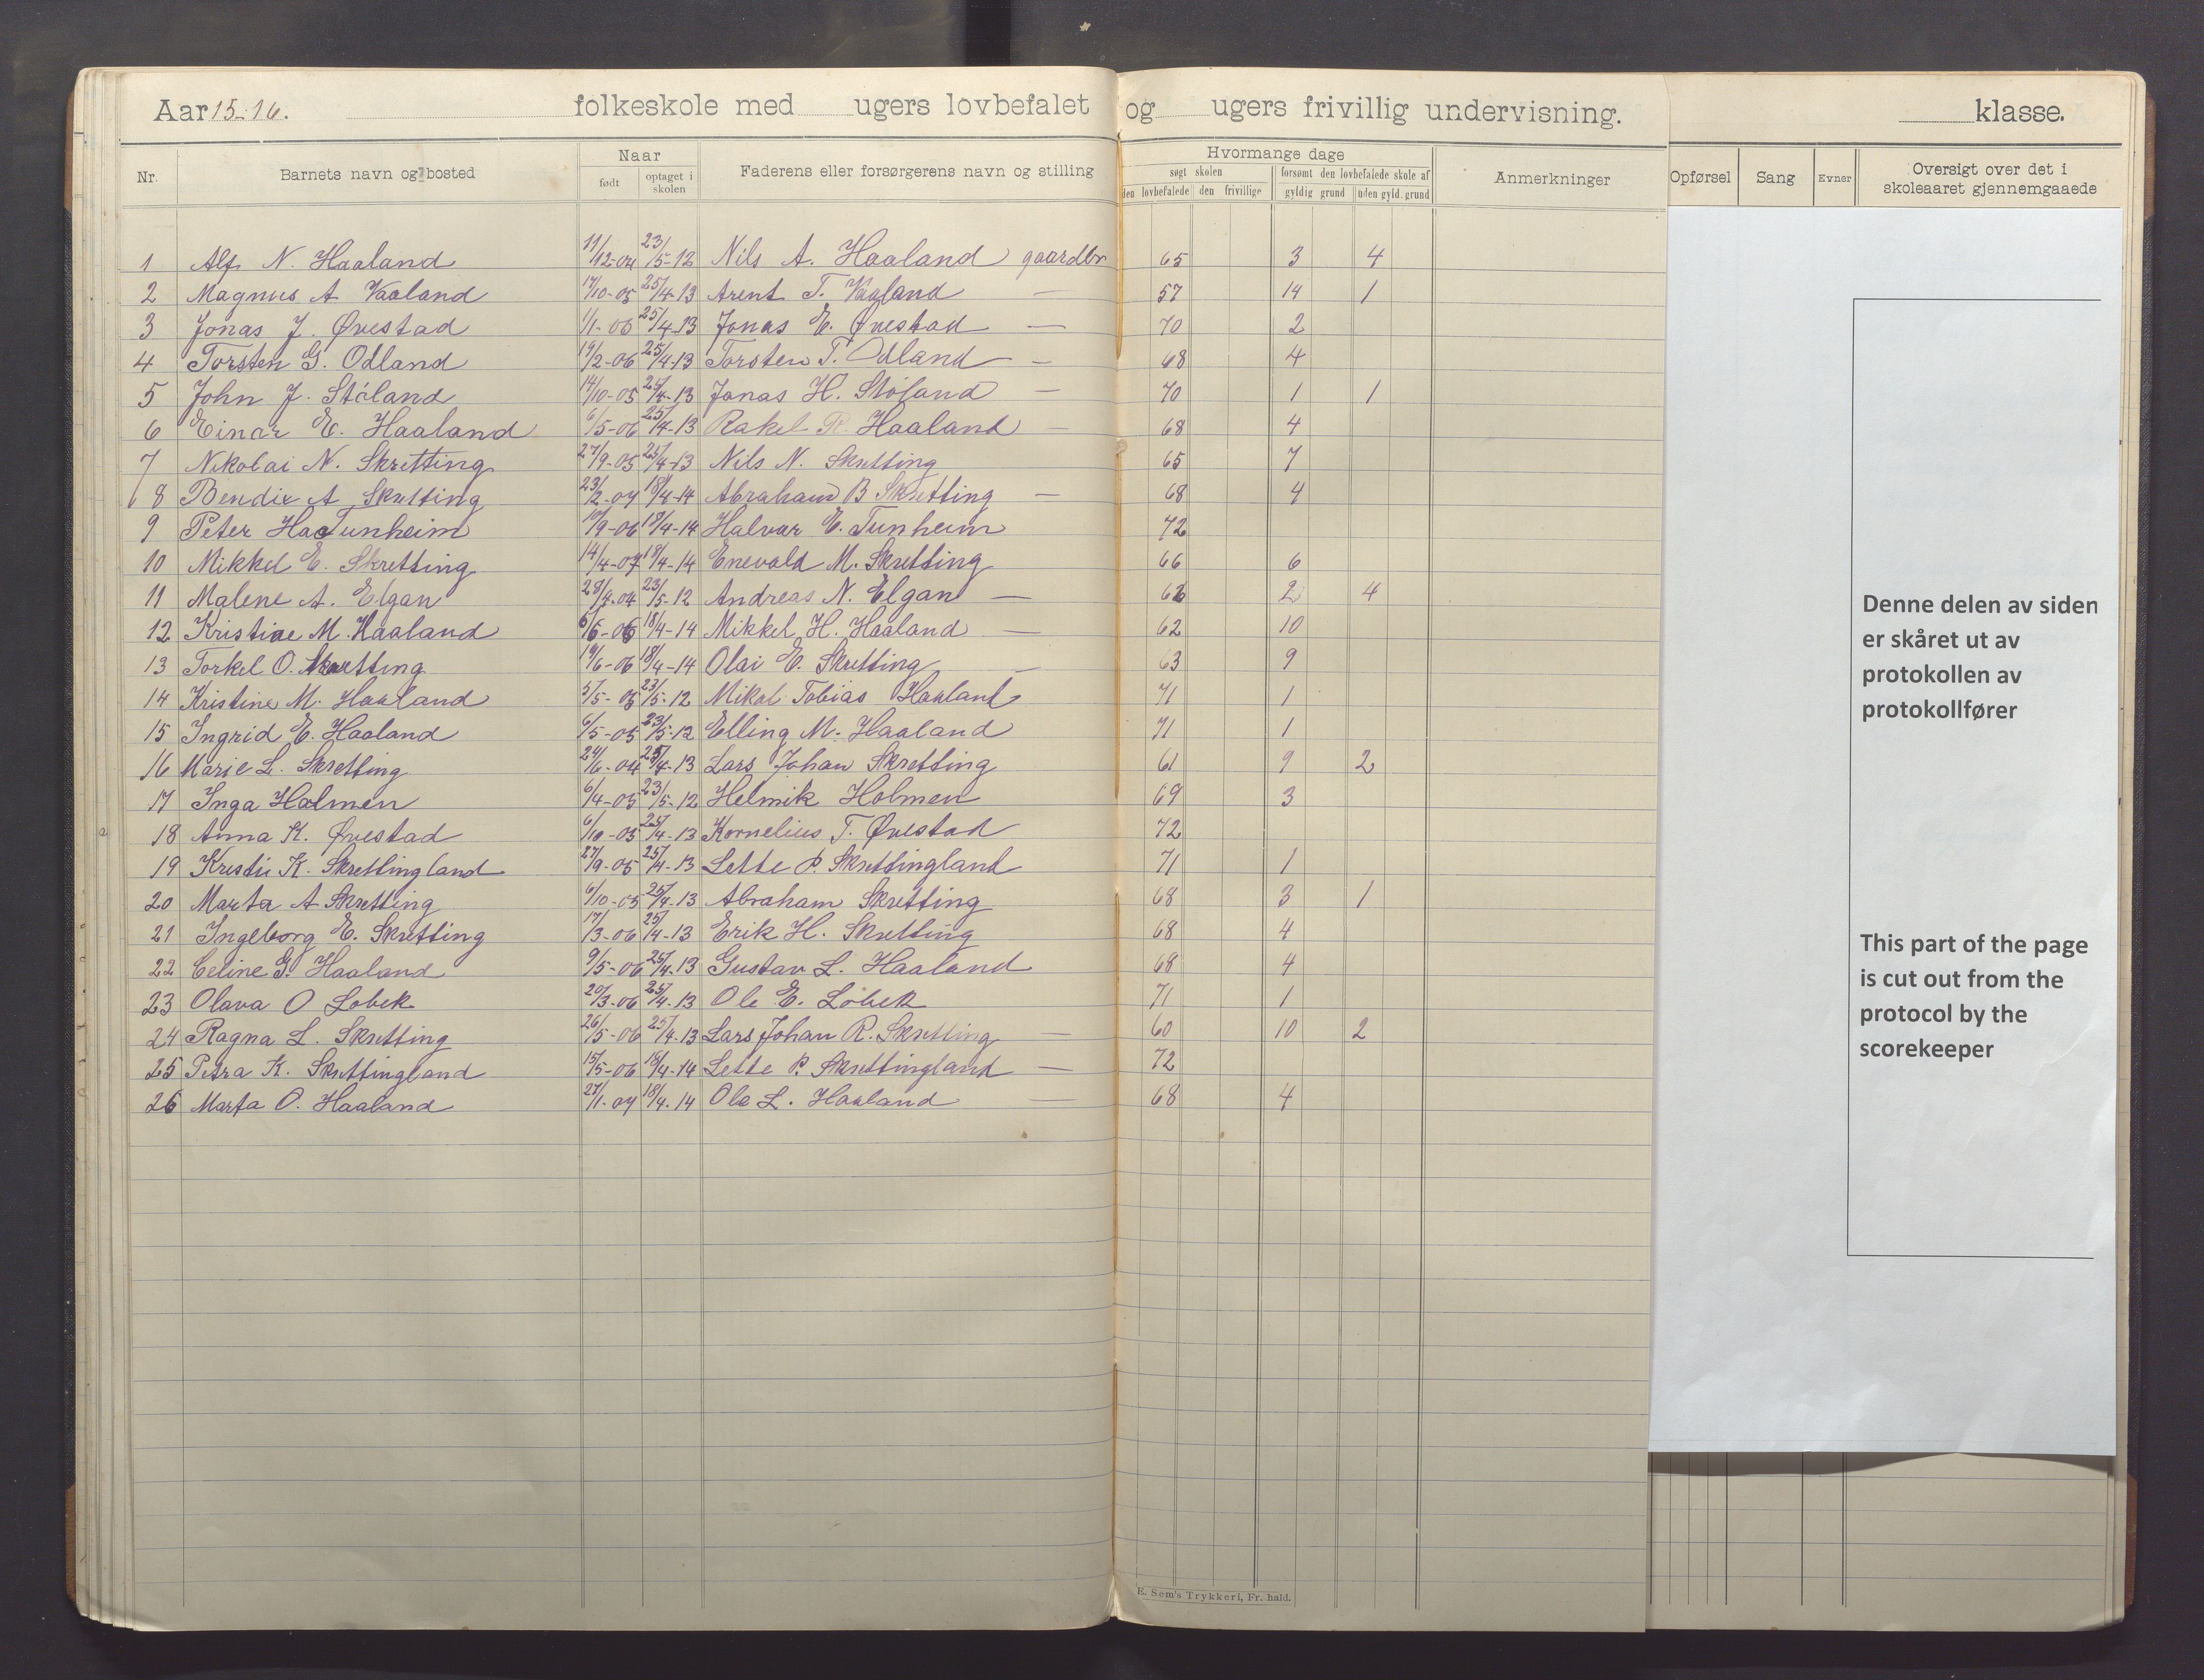 Aar 15-16. folkeskole med ugers lovbefalet og ugers frivillig undervisning. klasse.
Nr. Barnets navn og bosted Naar født optaget i skolen Faderens eller forsørgerens navn og stilling Hvormange dage søgt skolen den lovbefalede den frivillige forsømt den lovbefalede skole af gyldig grund uden gyld. grund Anmerkninger Opførsel Sang Evner Oversigt over det i skoleaaret gjennemgaaede
1 Alf N. Haaland 11/12-04 23/5-12 Nils A. Haaland gaardbr 65 3 4
2 Magnus A Vaaland 17/10-05 25/4-13 Arent T. Vaaland — 57 14 1
3 Jonas J. Øvestad 1/1-06 25/4-13 Jonas E. Øvestad — 70 2
4 Torsten G. Odland 19/2-06 25/4-13 Torsten T. Odland — 68 4
5 John J. Stöland 14/10-05 25/4-13 Jonas H. Stöland — 70 1 1
6 Einar E. Haaland 6/5-06 25/4-13 Rakel R. Haaland — 68 4
7 Nikolai N. Skretting 27/9-05 25/4-13 Nils N. Skretting 65 7
8 Bendix A Skretting 23/2-07 18/4-14 Abraham B Skretting — 68 4
9 Peter Ha Tunheim 10/9-06 18/4-14 Halvar E. Tunheim 72
10 Mikkel E. Skretting 14/4-07 18/4-14 Enevald M. Skretting 66 6
11 Malene A. Elgan 28/7-04 23/5-12 Andreas N. Elgan — 2 4
12 Kristine M. Haaland 18/4-14 Mikkel H. Haaland — 62 10
13 Torkel O. Skretting 19/6-06 18/4-14 Olai E. Skretting — 63 9
14 Kristine M. Haaland 5/5-05 23/5-12 Mikal Tobias Haaland 71 1
15 Ingrid E. Haaland 6/5-05 23/5-12 Elling M. Haaland 71 1
16 Marie L. Skretting 24/6-04 25/4-13 Lars Johan Skretting 61 9 2
17 Inga Holmen 6/4-05 23/5-12 Helmik Holmen 69 3
18 Anna K. Øvestad 6/10-05 25/4-13 Kornelius T. Øvestad 72
19 Kristi K. Skrettingland 27/9-05 25/4-13 Lette P. Skrettingland 71 1
20 Marta A Skretting 6/10-05 25/4-13 Abraham Skretting 68 3 1
21 Ingeborg E. Skretting 17/3-06 25/4-13 Erik H. Skretting 68 4
22 Celine G. Haaland 9/5-06 25/4-13 Gustav L. Haaland 68 4
23 Olava O Lobek 20/3-06 25/4-13 Ole E. Lobek 71 1
24 Ragna L. Skretting 26/5-06 25/4-13 Lars Johan R. Skretting — 60 10 2
25 Petra K. Skrettingland 15/5-06 18/4-14 Lette P. Skrettingland — 72
26 Marta O. Haaland 27/1-07 18/4-14 Ole L. Haaland — 68 4
Denne delen av siden
er skåret ut av
protokollen av
protokollfører
This part of the page
is cut out from the
protocol by the
scorekeeper
E. Sem's Trykkeri, Fr. hald.